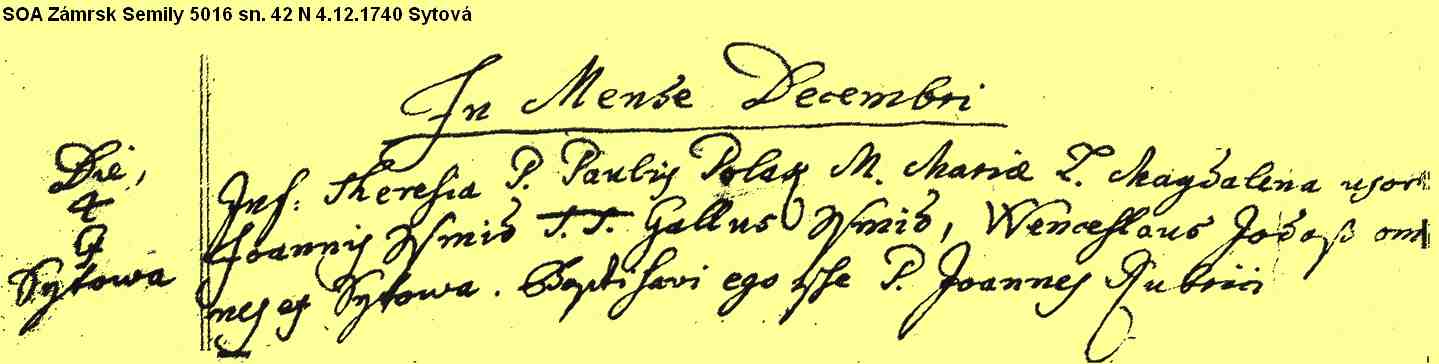 SOA Zámrsk Semily 5016 sn. 42 N 4.12.1740 Sytová
In Mense Decembri
Die,
4
Sytowa
Inf: Theresia P. Paulis Polak M. Maria L. Magdalena uxor
Joannis T.T. Gallus Wenceslaus om
nes ex Sytowa. Baptisavi ego P. Joannes